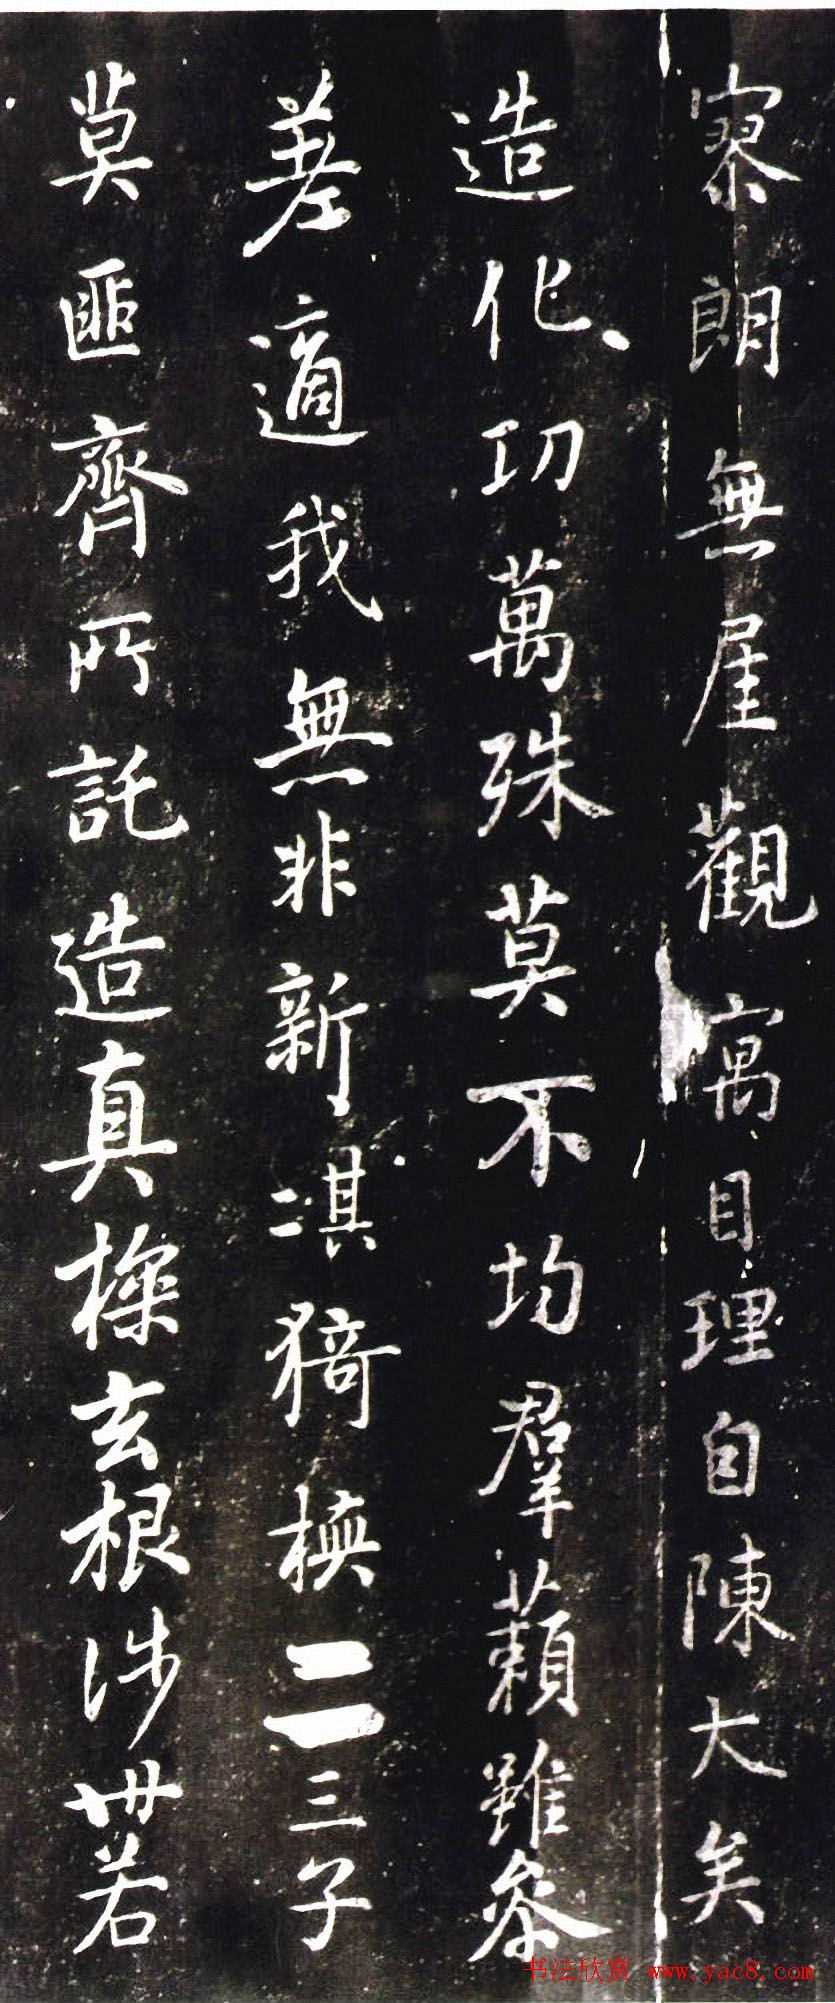 寥朗無厓觀寓目理自陳大矣
造化功萬殊莫不均羣藾雖參
差適我無非新淇猗模二三子
莫匪齊所託造真探玄根涉世若
书法欣赏 www.yac8.com